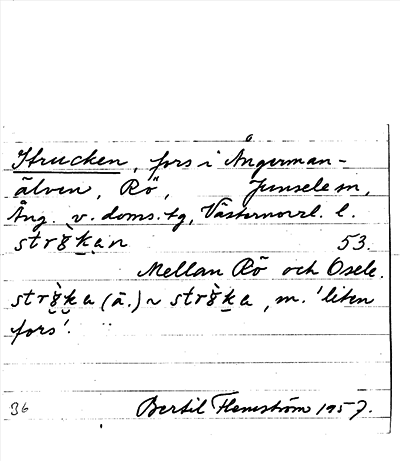 Strucken, fors i Ångerman-
älven, Rö, Junsele sn,
Ång. v. doms. tg, Västernorrl. l.
strỳkạn 53.
Mellan Rö och Osele.
strỳka (ä.) ~ strỳka, m. 'liten
fors'.
36 Bertil Flemström 1957.